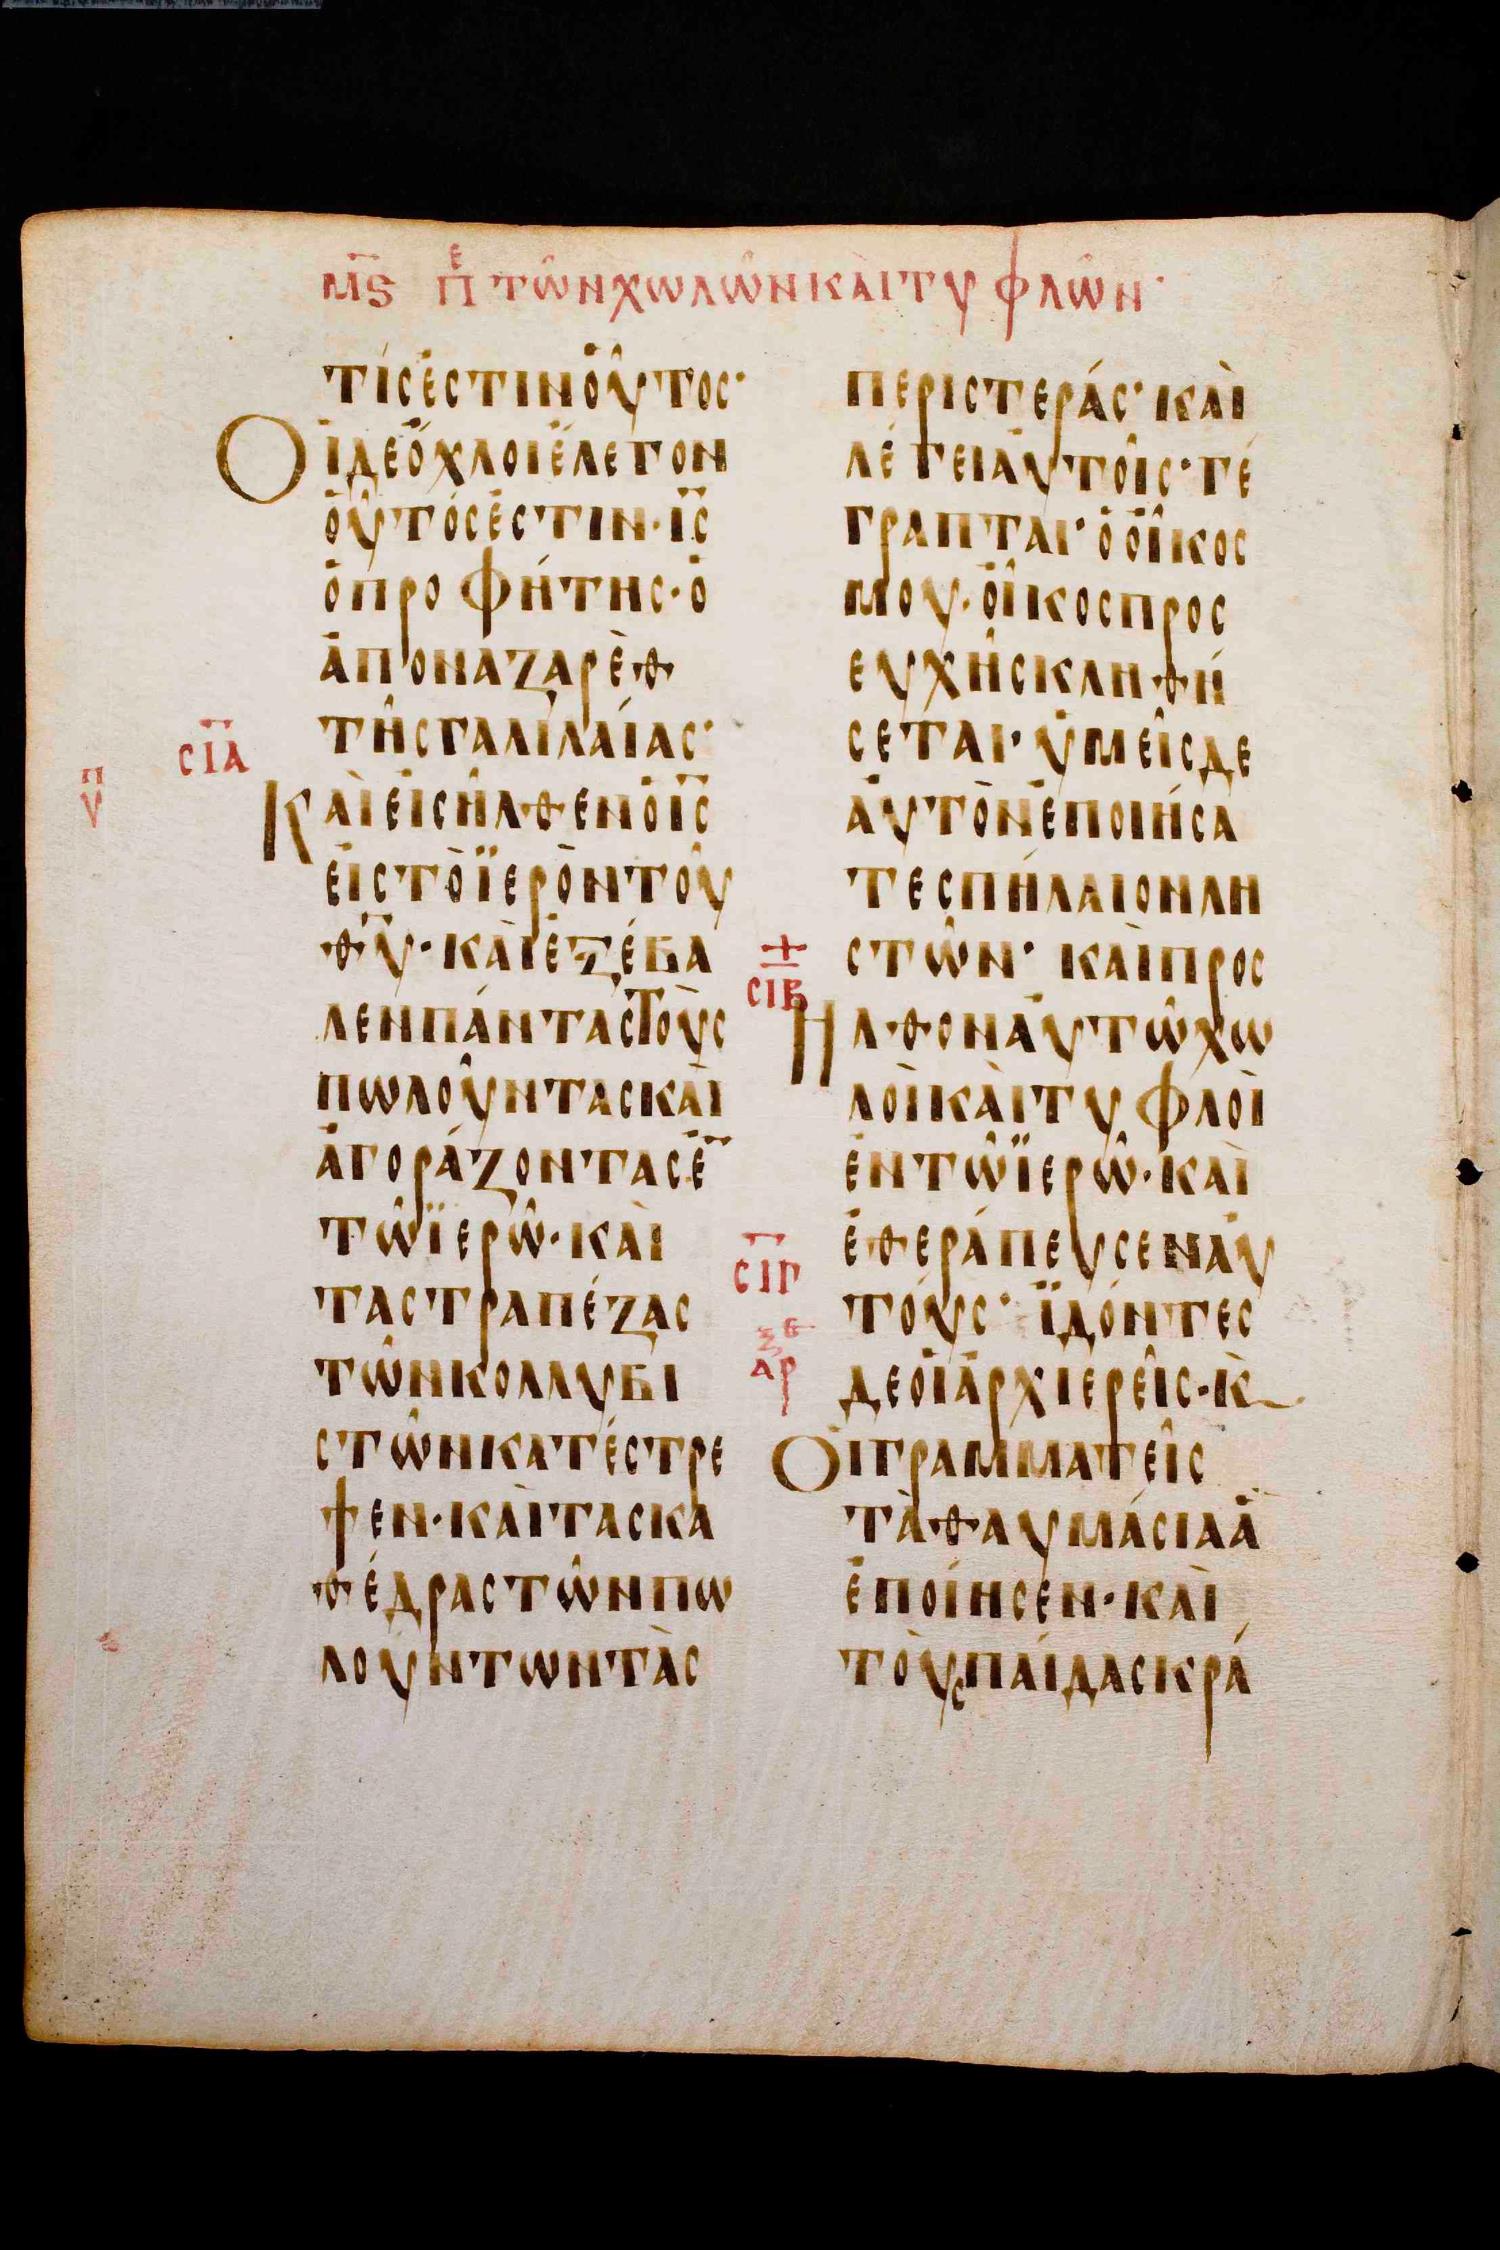 μ̅ϛ πε τῶν χωλῶν καὶ τυφλῶν·
τίς ἐστιν οὗτος·
Οἱ δὲ ὄχλοι ἔλεγον
οὗτός ἐστιν· ι̅ς̅
ὁ προφήτης· ὁ
ἀπὸ ναζαρὲθ
τῆς γαλιλαίας·
σ̅ι̅α̅
Καὶ εἰσῆλθεν ὁ ι̅ς̅
εἰς τὸ ϊερὸν τοῦ
θ̅υ̅· καὶ ἐξέβα
λεν πάντας τοὺς
πωλοῦντας καὶ
ἀγοράζοντας ἐ̅
τῶ ϊερῶ· καὶ
τας τραπέζας
τῶν κολλυβι
στῶν κατέστρε
ψεν· καὶ τας κα
θέδρας τῶν πω
λούντων τὰς
περιστεράς· καὶ
λέγει αὐτοῖς· γέ
γραπται· ὁ οἶκός
μου· οἶκος προς
ευχῆς κληθή
σεται· ὑμεῖς δε
ἀυτὸν ἐποιήσα
τε σπήλαιον λη
στῶν· καὶ προς
σ̅ι̅β̅
ῆλθον αὐτῶ χω
λοὶ καὶ τυφλοὶ
ἐν τῶ ϊερῶ· καὶ
ἐθεράπευσεν αὐ
σ̅ι̅γ̅
τούς· ϊδόντες
αρ
δε οἱ ἀρχιερεῖς· κ̀
Οἱ γραμματεῖς
τὰ θαυμάσια ἃ
ἐποίησεν· καὶ
τοὺς παίδας κρά